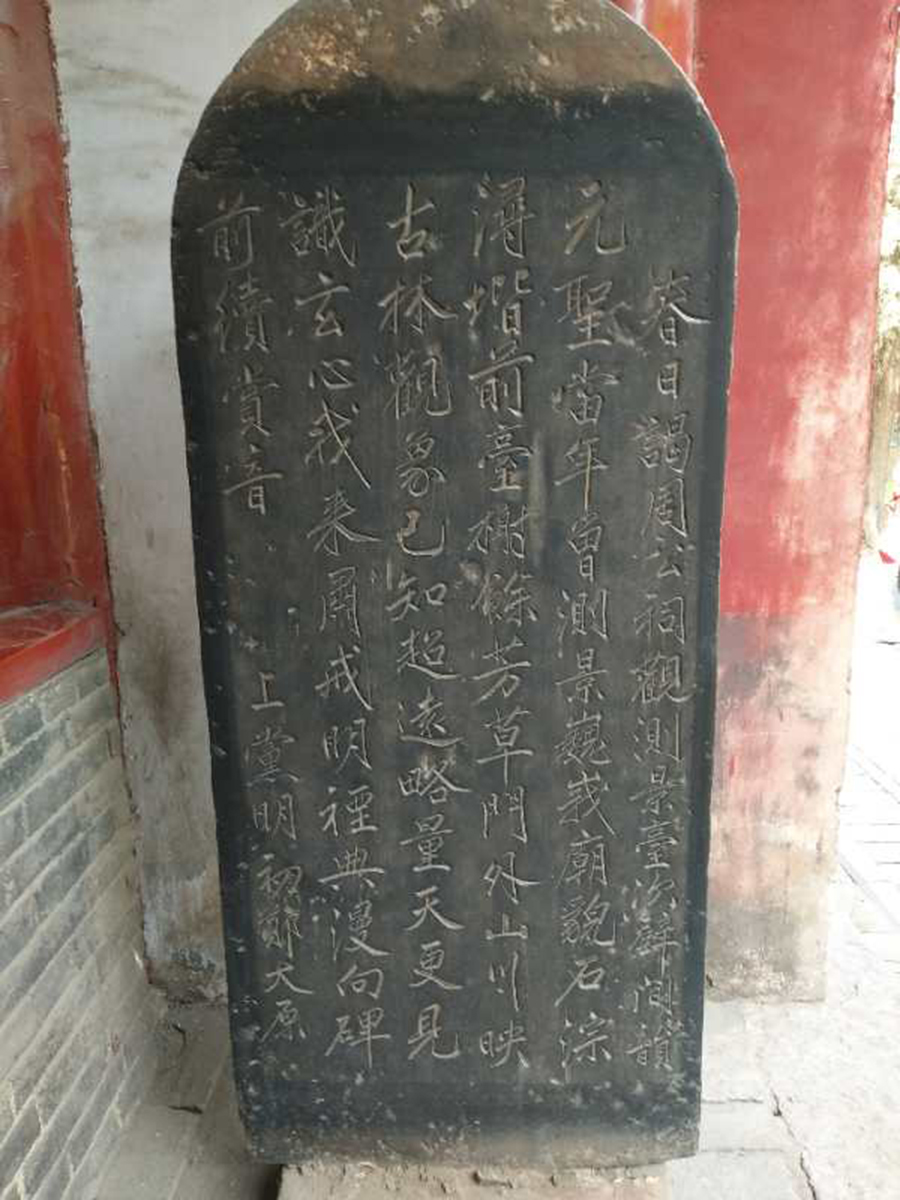 春日謁周公祠觀測景臺次間韻
元聖當年曾測景巍峩廟貌石淙
潯堦前臺榭餘芳草門外山川映
古林觀象已知超遠略量天更見
識玄心我来肅戒明禋典漫向碑
前續賞音 上黨明初鄭大原